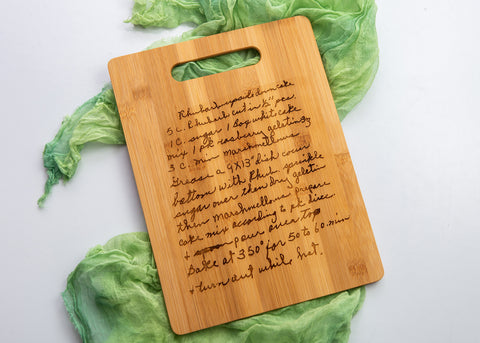 Rhubarb upside down cake
5 c. Rhubarb cut in ½" pcs
1 c. sugar 1 Box white cake
mix 1 pkt rasberry gelatin 3 oz
3 c. min marshmellows
Grease a 9x13" dish cover
bottom with Rhub. sprinkle
sugar over then dry gelatin
then Marshmellows prepare
cake mix according to pk. direc.
+ pour over top
Bake at 350° for 50 to 60 min
+ turn out while hot.